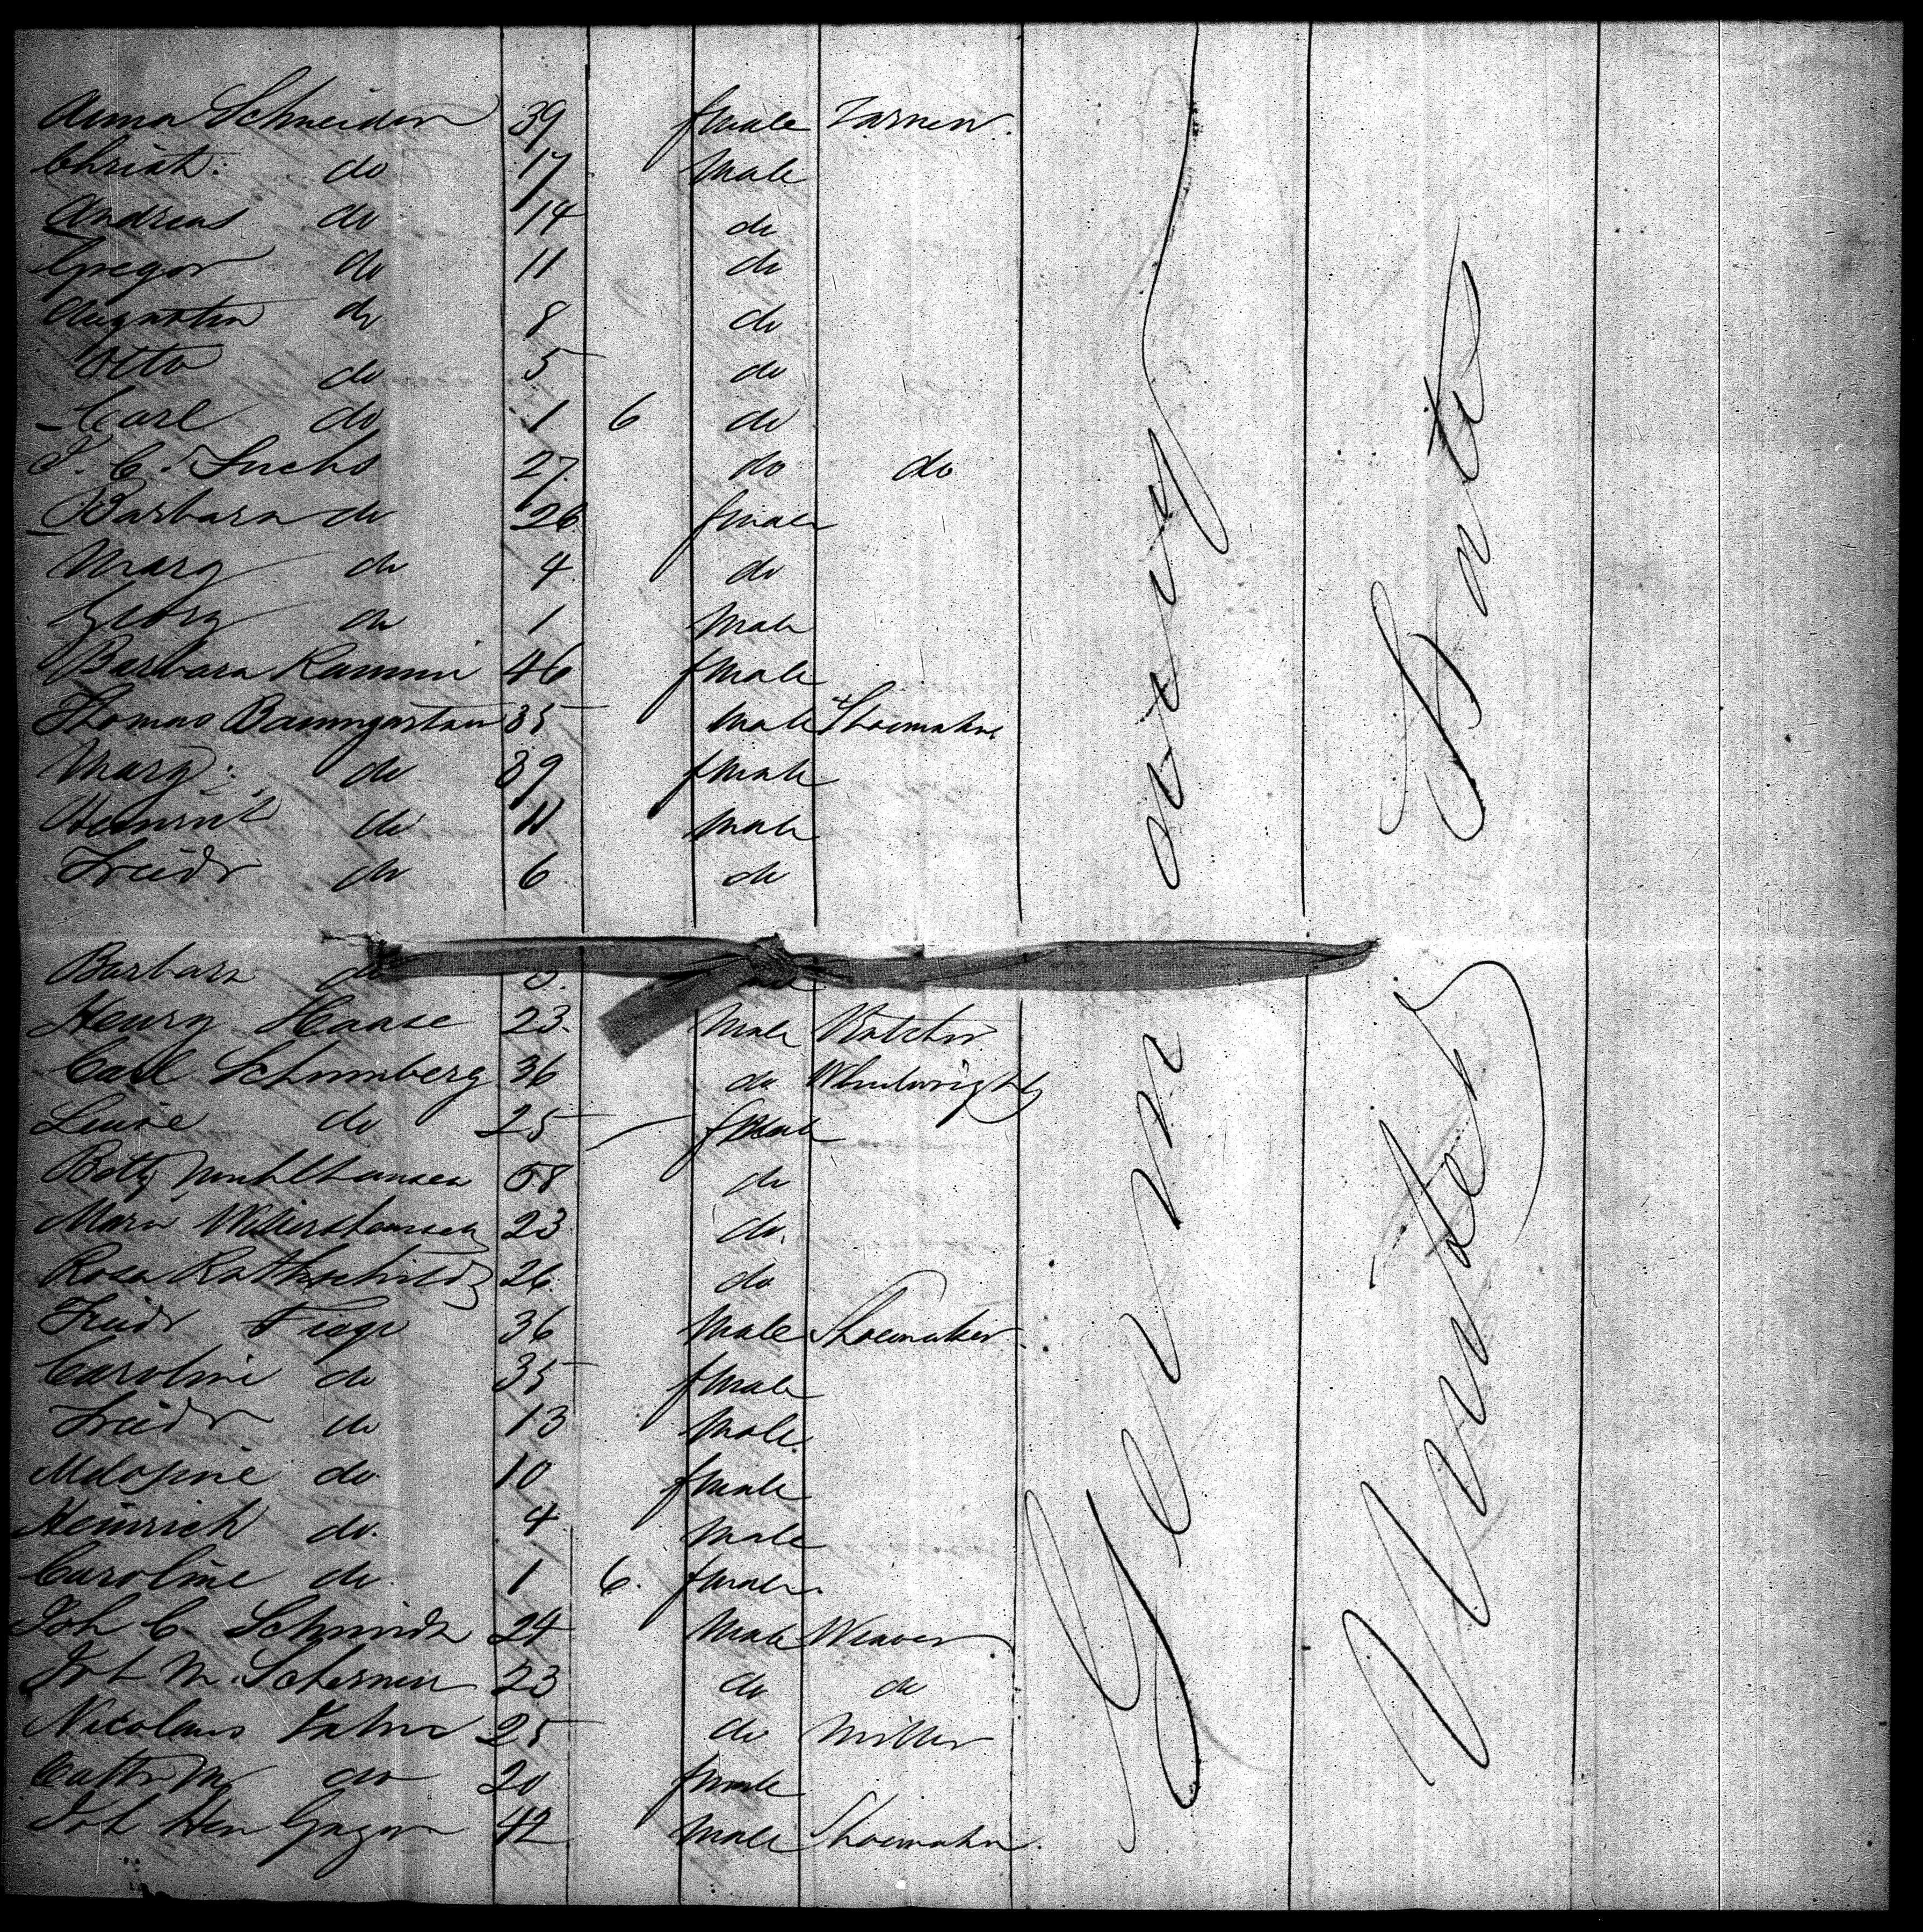 Anna Schneider 39 female Farmer.
Christ: do 17 Male
Andreas do 14 do
Gregor do 11 do
Augustin do 8 do
Otto do 5 do
Carl do 1 6 do
J. C. Fuchs 27 do do
Barbara do 26 female
Marg do 4 do
Georg do 1 Male
Barbara 46 female
Thomas Baumgarten 35 Male Shoemaker
Marg: do 39 female
Heinrich do 11 Male
Friedr do 6 do
Barbara do
Henry Haase 23. Male Butcher
Carl Schomberg 36 do Wheelwright
Luise do 25 female
Betty Muhlhausen 58 do
Maria 23 do.
Rosa Rothschild 26 do
Friedr 36 Male Shoemaker
Caroline do 35 female
Friedr do 13 Male
do 10 female
Heinrich do. 4 Male
Caroline do. 1 6. female.
Joh C. Schmidt 24 Male Weaver
Joh M. 23 do do
Nicolaus 25 do Miller
Cath M do 20 female
Joh Hen 42 Male Shoemaker.
Germany
United States